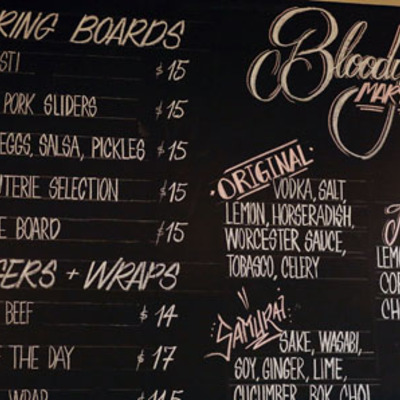 RING BOARDS
STI $15
PORK SLIDERS $15
EGGS, SALSA, PICKLES $15
TERIE SELECTION $15
E BOARD $15
GERS + WRAPS
BEEF $14
THE DAY $17
WRAP
Bloody
MAR
ORIGINAL
VODKA, SALT,
LEMON, HORSERADISH,
WORCESTER SAUCE,
TOBASCO, CELERY
SAMURAI
SAKE, WASABI,
SOY, GINGER, LIME,
CUCUMBER, BOK CHOI
LEM
COR
CH